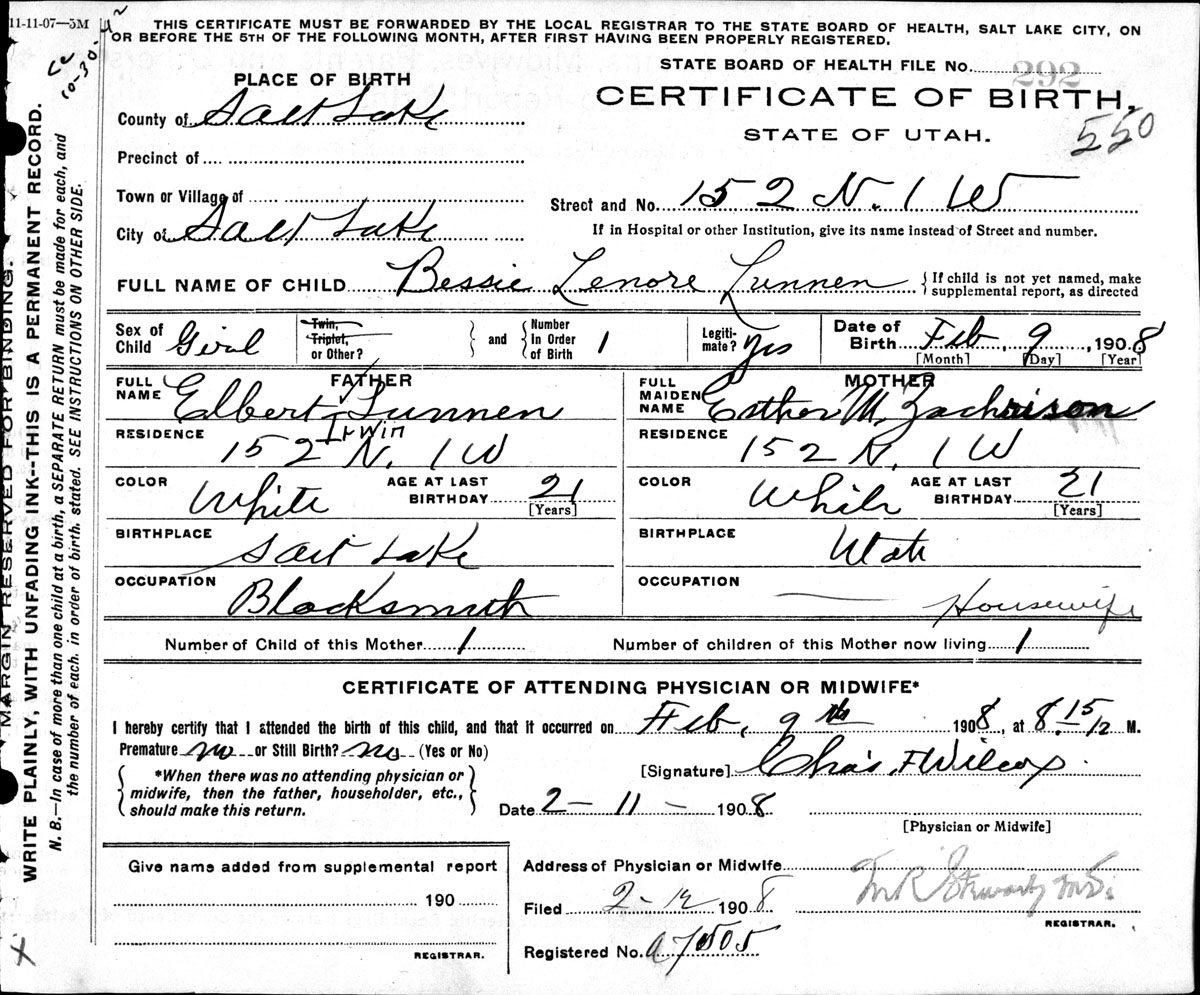 11-11-07—3M
THIS CERTIFICATE MUST BE FORWARDED BY THE LOCAL REGISTRAR TO THE STATE BOARD OF HEALTH, SALT LAKE CITY, ON
OR BEFORE THE 5TH OF THE FOLLOWING MONTH, AFTER FIRST HAVING BEEN PROPERLY REGISTERED.
10-30-
MARGIN RESERVED FOR BINDING.
WRITE PLAINLY, WITH UNFADING INK--THIS IS A PERMANENT RECORD.
N. B.—In case of more than one child at a birth, a SEPARATE RETURN must be made for each, and
the number of each, in order of birth, stated. SEE INSTRUCTIONS ON OTHER SIDE.
STATE BOARD OF HEALTH FILE No. 292
CERTIFICATE OF BIRTH.
STATE OF UTAH.
550
PLACE OF BIRTH
County of Salt Lake
Precinct of
Town or Village of
City of Salt Lake
Street and No. 152 N. 1 W
If in Hospital or other Institution, give its name instead of Street and number.
FULL NAME OF CHILD Bessie Lenore Lunnen { If child is not yet named, make
supplemental report, as directed
Sex of Child Girl Twin, Triplet, or Other? } and { Number In Order of Birth 1 Legiti-mate? Yes Date of Birth Feb, 9, 1908
[Month] [Day] [Year]
FATHER
FULL NAME Elbert Irwin Lunnen
RESIDENCE 152 N. 1 W
COLOR White AGE AT LAST BIRTHDAY 21
[Years]
BIRTHPLACE Salt Lake
OCCUPATION Blacksmith
MOTHER
FULL MAIDEN NAME Esther M. Zachrison
RESIDENCE 152 N. 1 W
COLOR White AGE AT LAST BIRTHDAY 21
[Years]
BIRTHPLACE Utah
OCCUPATION Housewife
Number of Child of this Mother 1 Number of children of this Mother now living 1
CERTIFICATE OF ATTENDING PHYSICIAN OR MIDWIFE*
I hereby certify that I attended the birth of this child, and that it occurred on Feb, 9th 1908, at 8:15 M.
Premature no or Still Birth? no (Yes or No)
{ *When there was no attending physician or
midwife, then the father, householder, etc.,
should make this return. }
[Signature] Chas. F Wilcox.
Date 2-11- 1908
[Physician or Midwife]
Give name added from supplemental report
190
REGISTRAR.
Address of Physician or Midwife
Filed 2-12 1908 M R Stewart M.D.
REGISTRAR.
Registered No. a7505
X